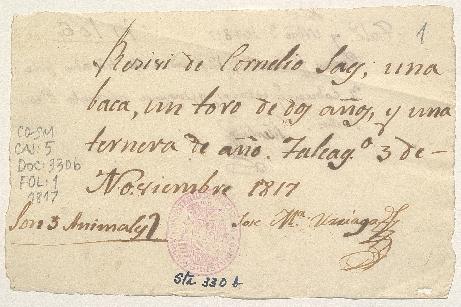 1
Recivi de Cornelio Say, una
baca, un toro de dos años, y una
ternera de año. Talcag.º 3 de
Noviembre 1817
CO-SM
CAJ: 5
DOC: 330b
FOL: 1
1817
Son 3 Animales
Jose M.ª
Sta 330 b